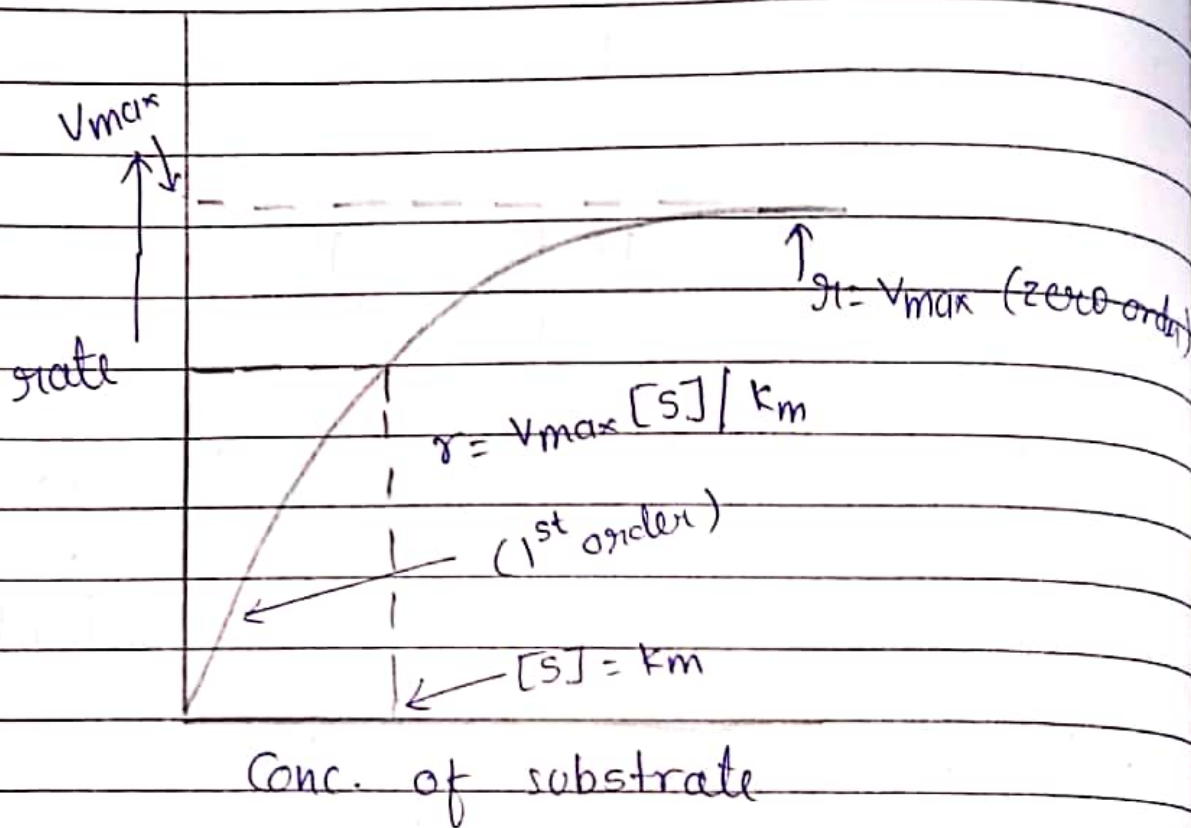 Vmax
rate
r = Vmax (zero order)
r = Vmax [S] / Km
(1st order)
[S] = Km
Conc. of substrate